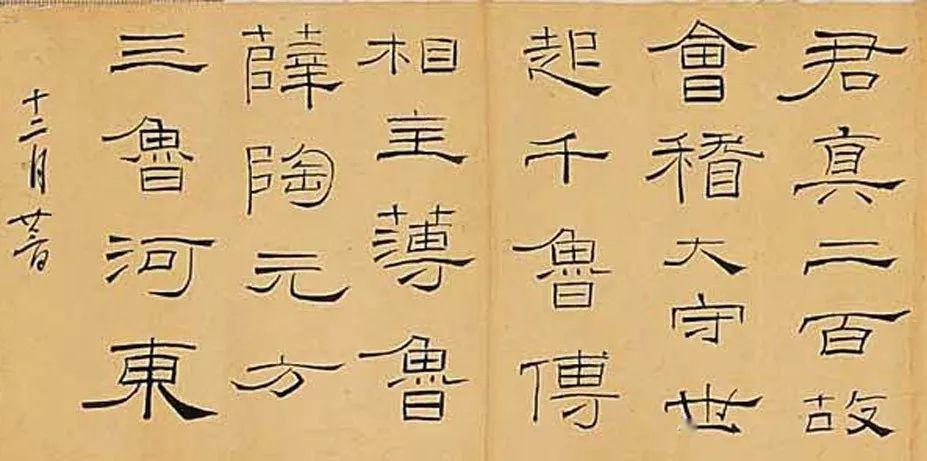 君真二百故
會稽大守世
起千魯傅
相主薄魯
薛陶元方
三魯河東
十二月廿二日